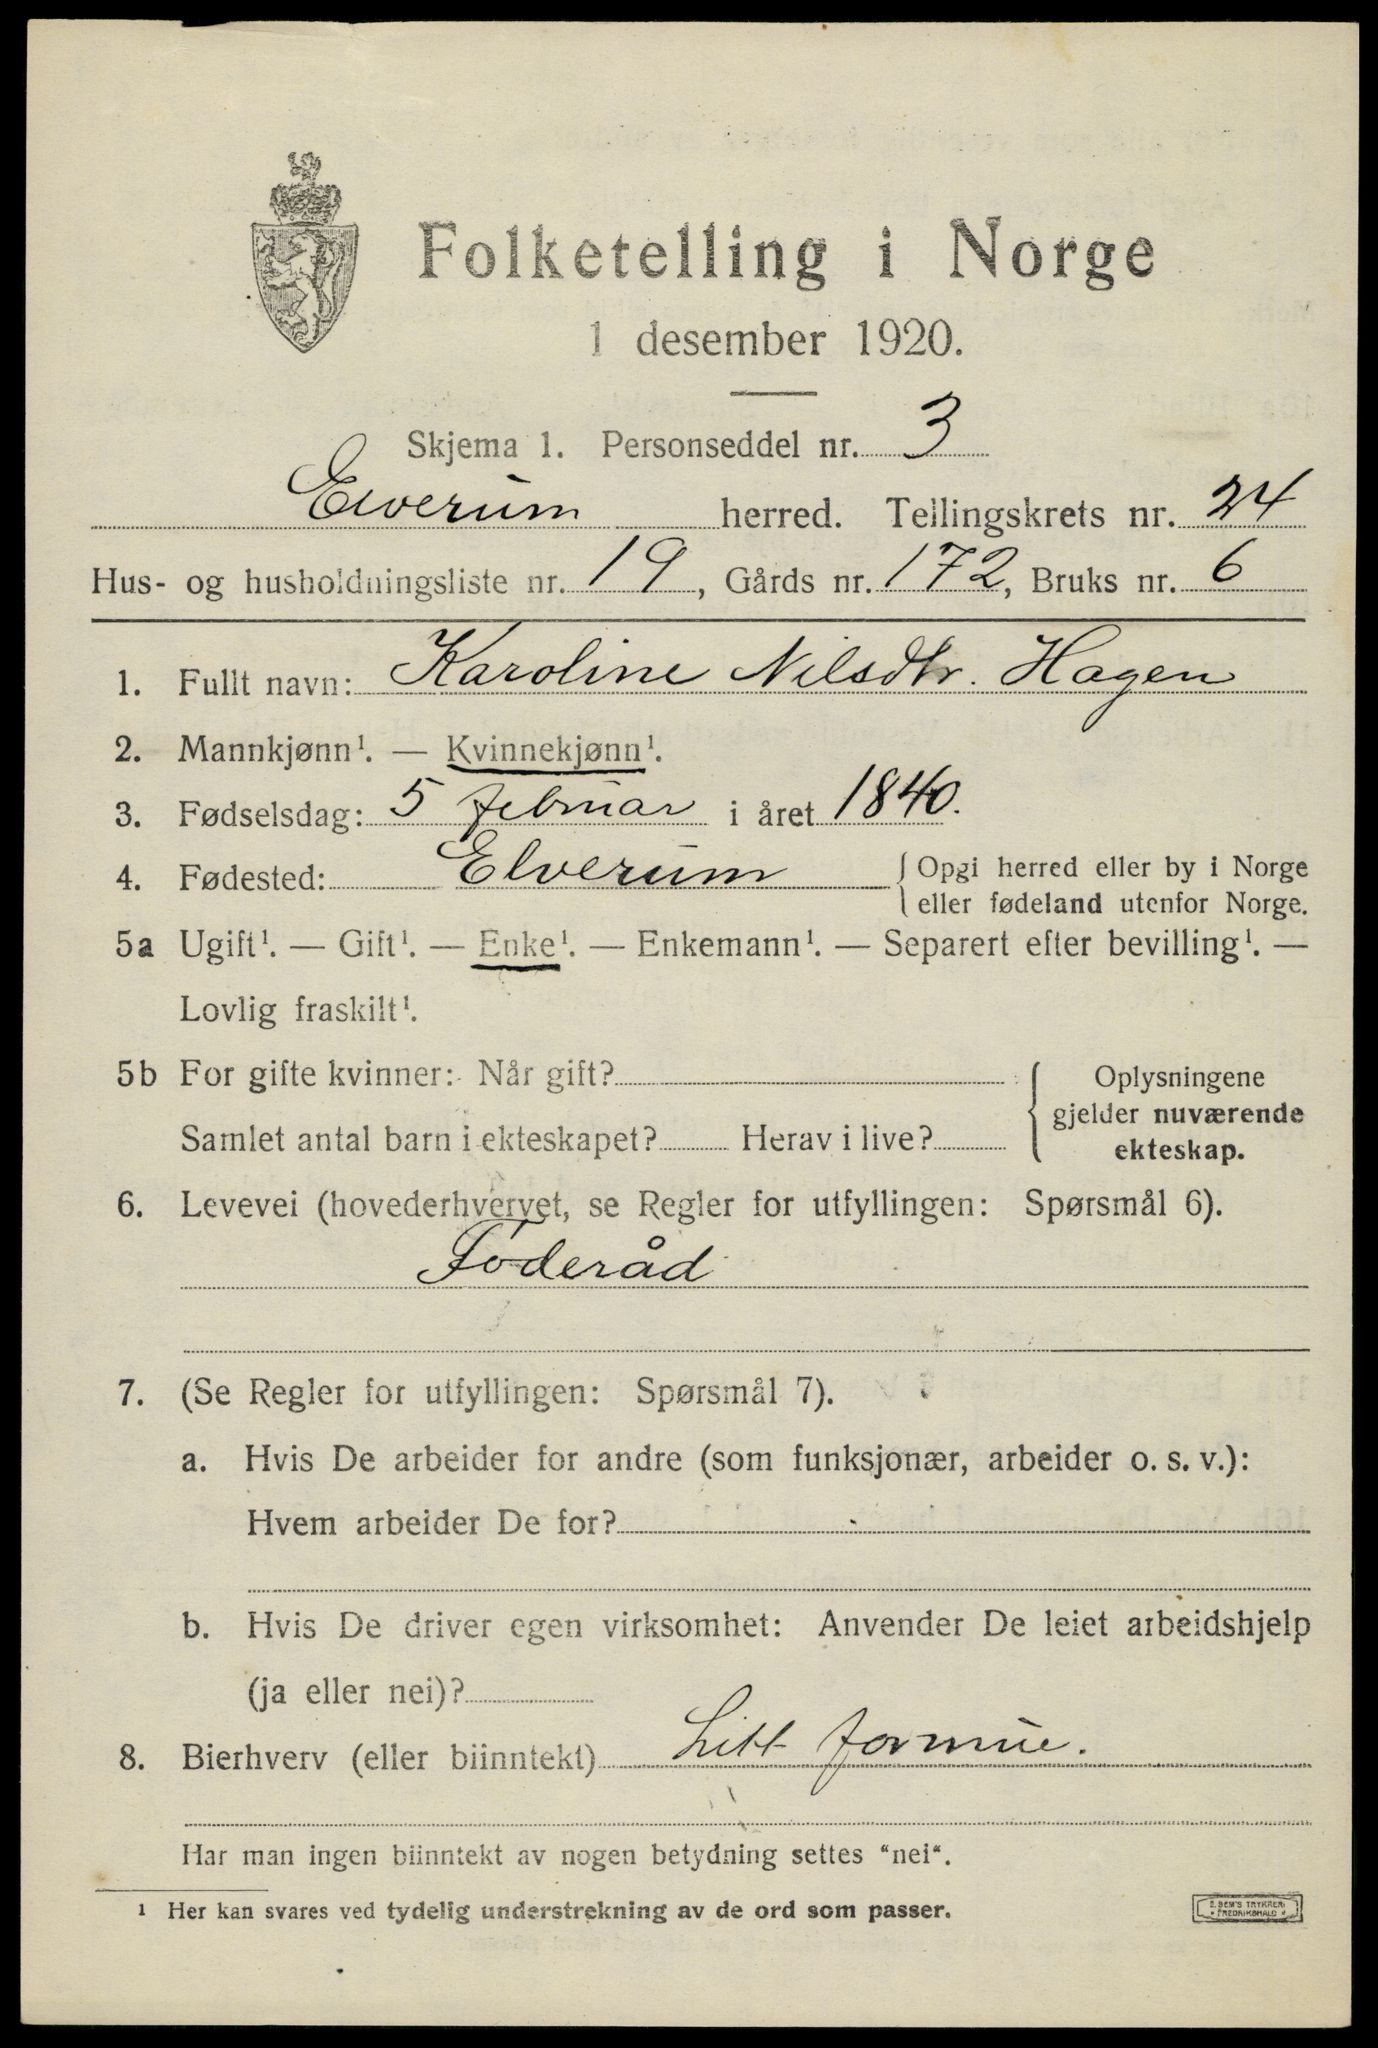 Folketelling i Norge
1 desember 1920.
Skjema 1. Personseddel nr. 3
Elverum herred. Tellingskrets nr. 24
Hus- og husholdningsliste nr. 19, Gårds nr. 172, Bruks nr. 6
1. Fullt navn: Karoline Nilsdtr. Hagen
2. Mannkjønn¹. — Kvinnekjønn¹.
3. Fødselsdag: 5 februar i året 1840.
4. Fødested: Elverum { Opgi herred eller by i Norge
eller fødeland utenfor Norge.
5a Ugift¹. — Gift¹. — Enke¹. — Enkemann¹. — Separert efter bevilling¹. —
Lovlig fraskilt¹.
5b For gifte kvinner: Når gift?
Samlet antal barn i ekteskapet? Herav i live?
{ Oplysningene
gjelder nuværende
ekteskap.
6. Levevei (hovederhvervet, se Regler for utfyllingen: Spørsmål 6).
Foderåd
7. (Se Regler for utfyllingen: Spørsmål 7).
a. Hvis De arbeider for andre (som funksjonær, arbeider o. s. v.):
Hvem arbeider De for?
b. Hvis De driver egen virksomhet: Anvender De leiet arbeidshjelp
(ja eller nei)?
8. Bierhverv (eller biinntekt) Litt formue.
Har man ingen biinntekt av nogen betydning settes "nei".
¹ Her kan svares ved tydelig understrekning av de ord som passer.
E. SEM'S TRYKKERI
FREDRIKSHALD